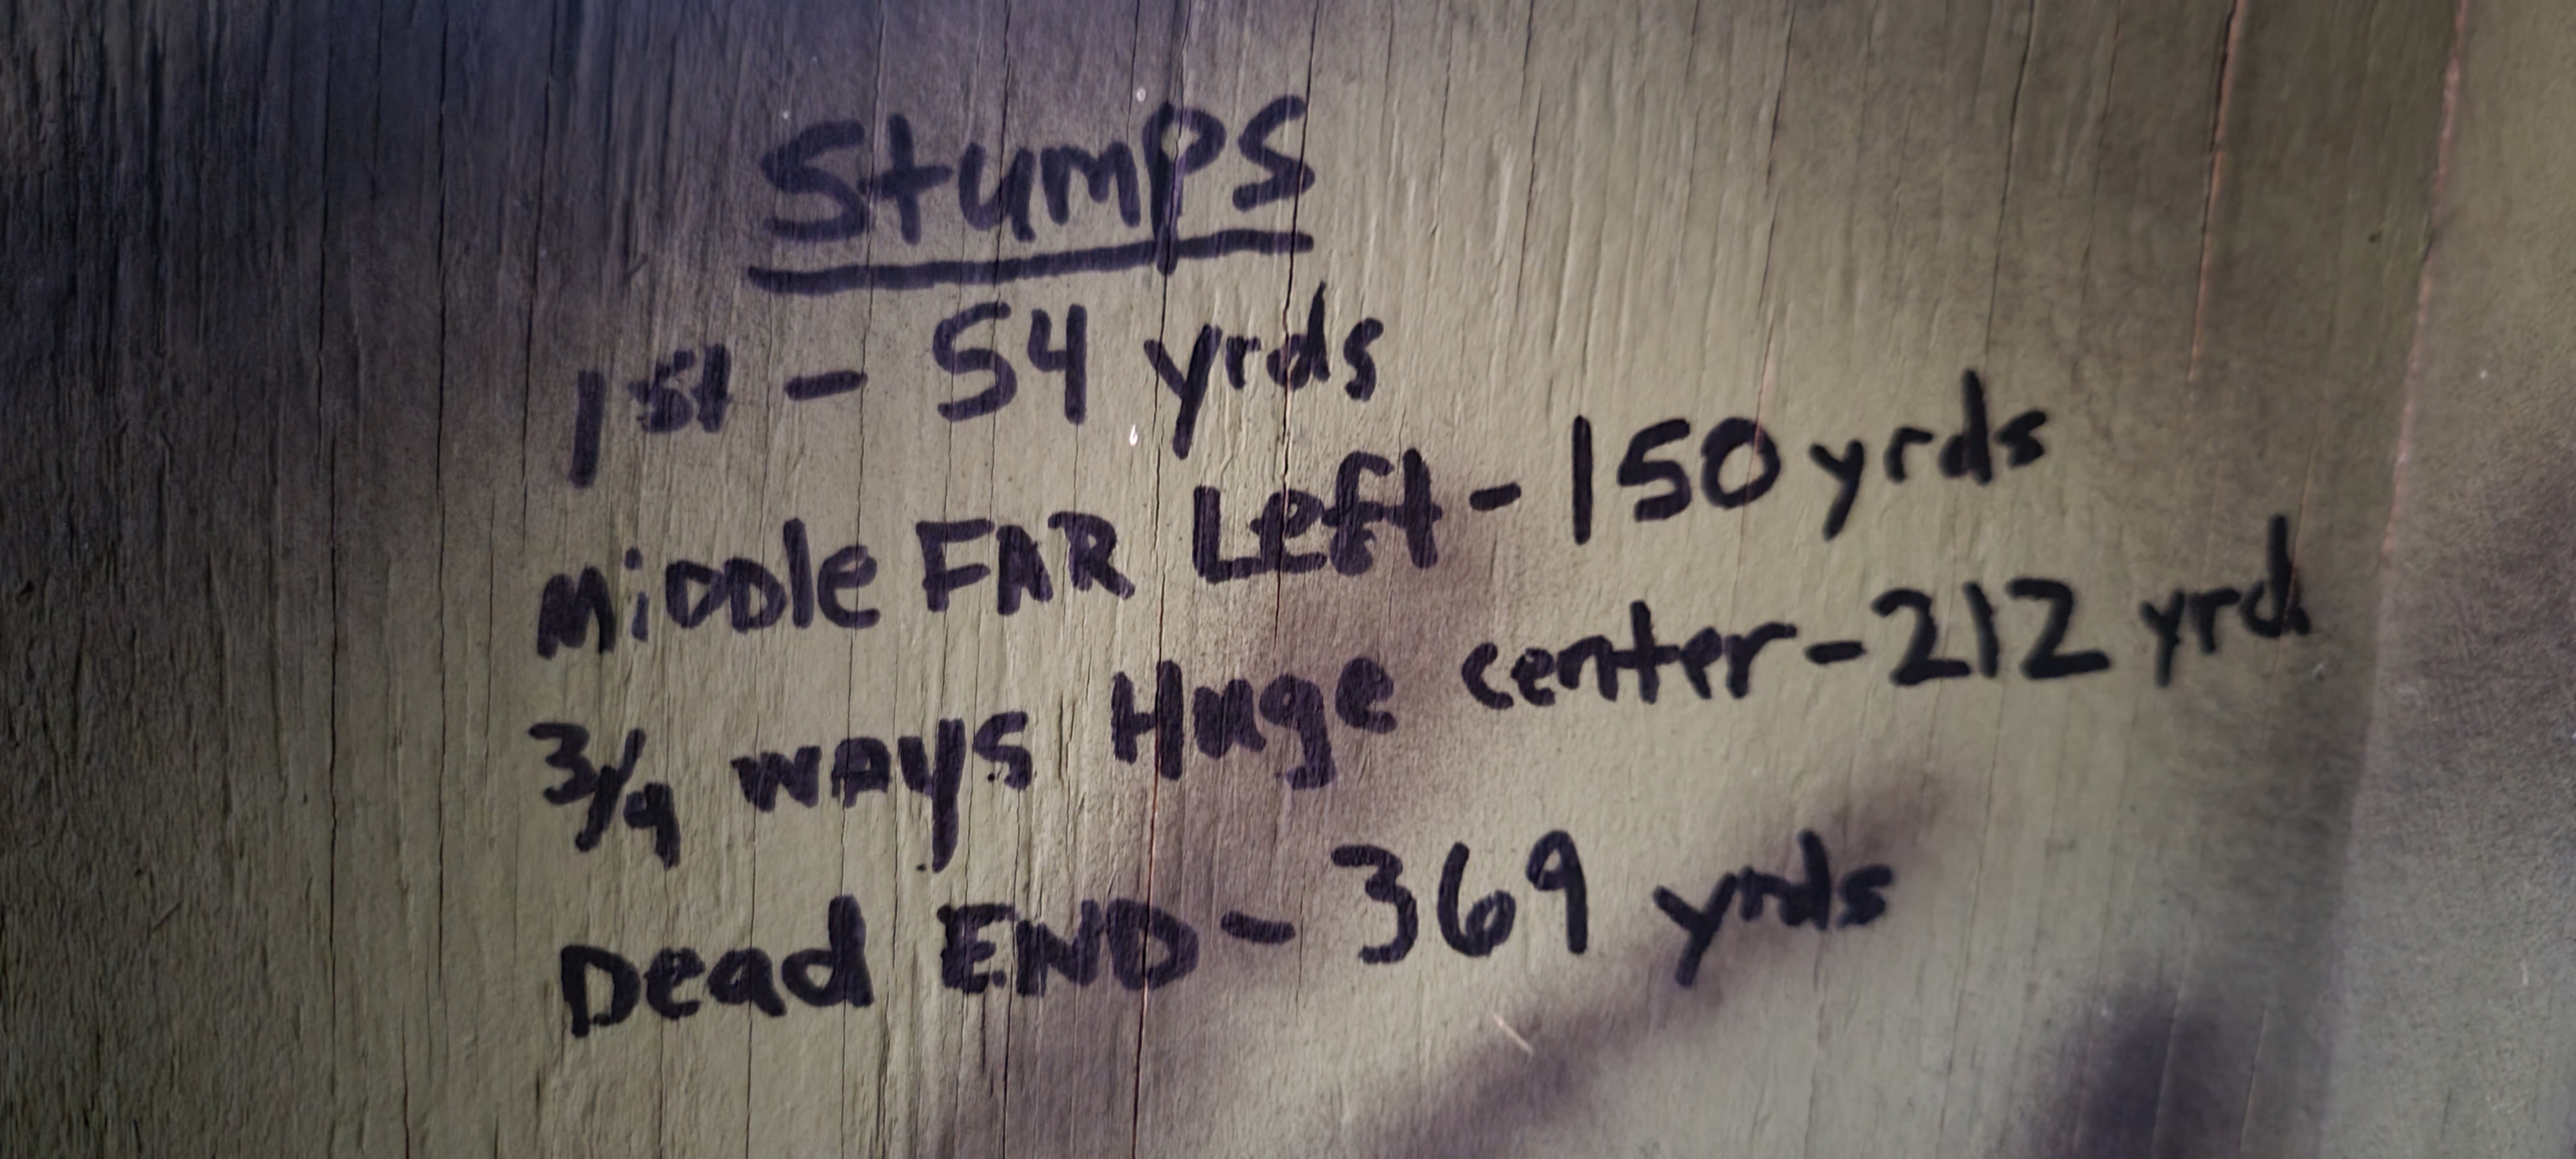 Stumps
1st - 54 yrds
MiDDle FAR Left - 150 yrds
3/4 WAYS Huge center - 212 yrd
Dead END - 369 yrds